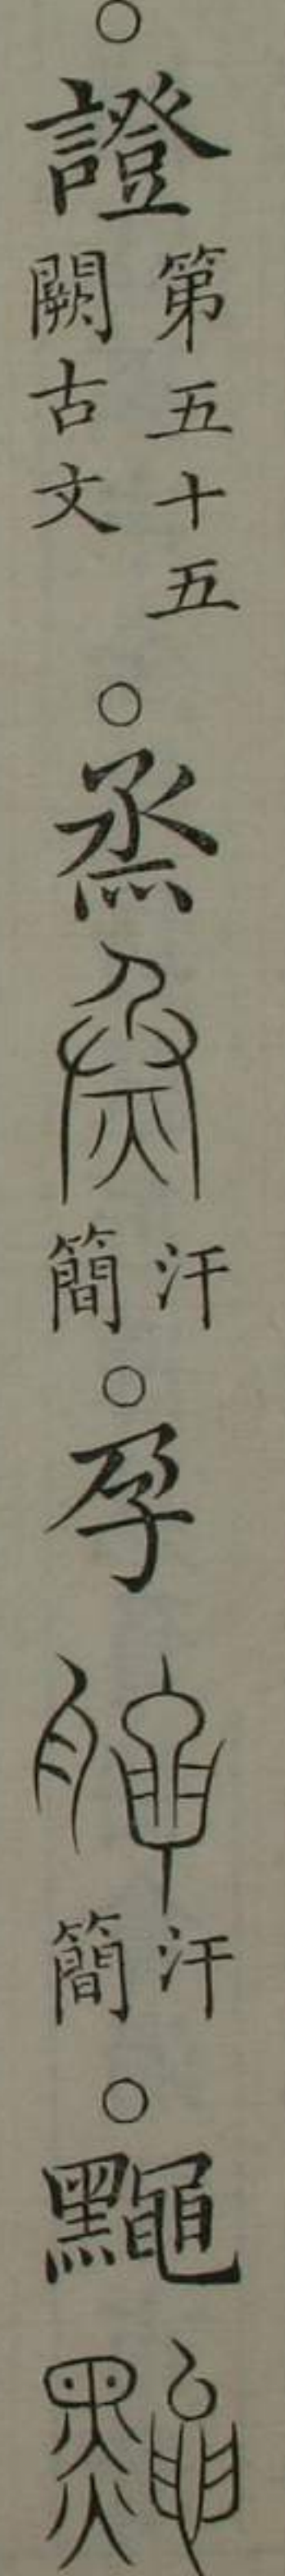 ○證第五十五闕古文○烝汗簡○孕汗簡○䵴